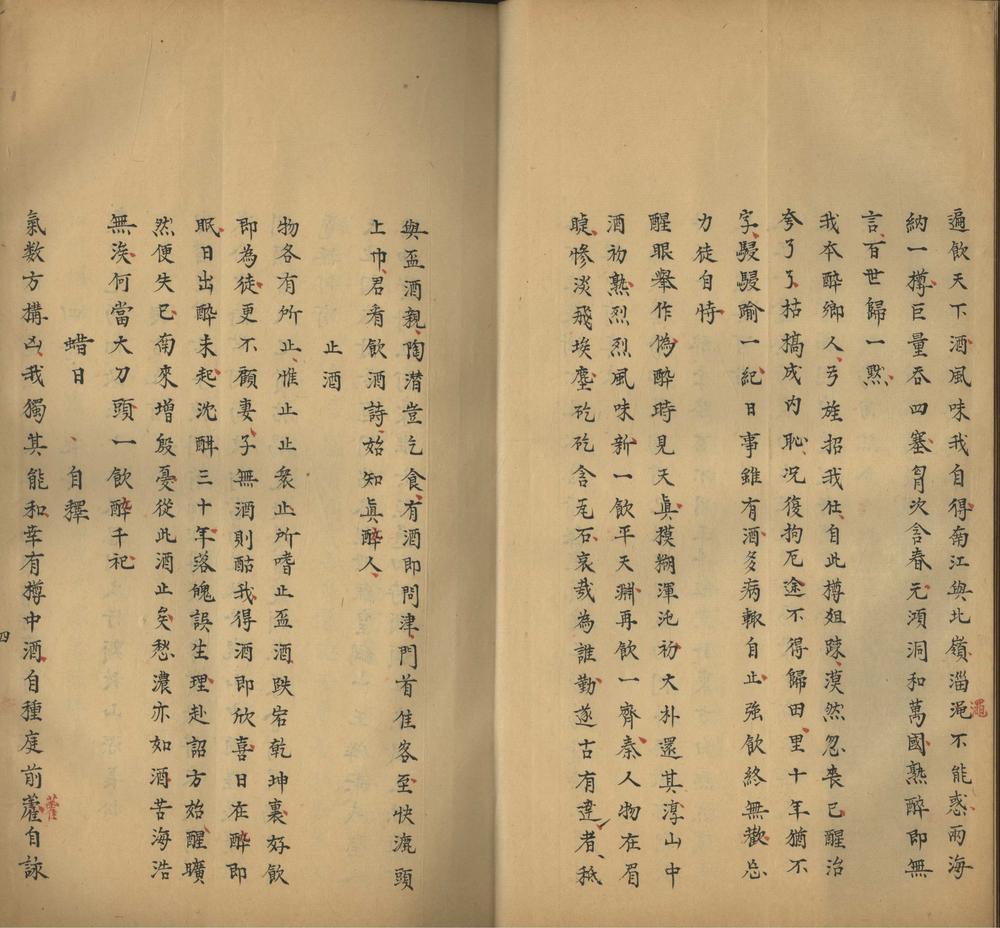 遍飲天下酒風味我自得南江與北嶺淄渑不能惑兩海
澠
納一樽巨量吞四塞胷次含春元澒洞和萬國熟酔即無
言百世歸一黙
我本酔鄉人弓旌招我仕自此樽俎踈漠然忽喪已醒治
夸了了枯槁成内恥况復拘厄途不得歸田里十年猶不
字騣騣踰一紀日事雖有酒多病輙自止強飲終無歡忘
力徒自恃
醒眼舉作偽酔時見天真摸糊渾沌初大朴還其淳山中
酒初熟烈烈風味新一飲平天淵再飲一齊秦人物在眉
睫慘淡飛埃塵矻矻含瓦石哀㢤為誰勤遂古有達者秪
與盃酒親陶潜豈乞食有酒即問津門首佳客至快漉頭
上巾君看飲酒詩始知真酔人
止酒
物各有所止惟止止衆止所嗜止盃酒跌宕乾坤裏好飲
即為徒更不顧妻子無酒則酤我得酒即欣喜日在酔即
眠日出酔未起沈酣三十年落魄誤生理赴詔方始醒曠
然便失已南來增殷憂從此酒止矣愁濃亦如酒苦海浩
無涘何當大刀頭一飲酔千祀
蜡日　自釋
氣数方搆凶我獨其能和幸有樽中酒自種庭前藿自詠
藿
四